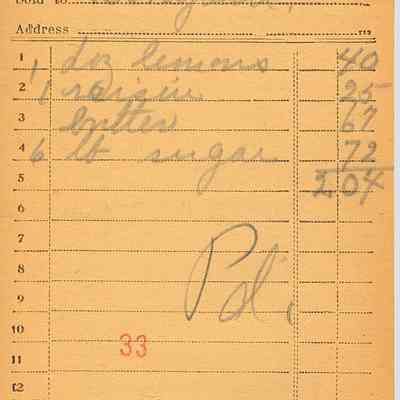 Sold to
Address
1 1 doz lemons 40
2 1 raisin 25
3 butter 67
4 6 lb sugar 72
5 2 04
6
7
8 Pd.
9
10
33
11
12